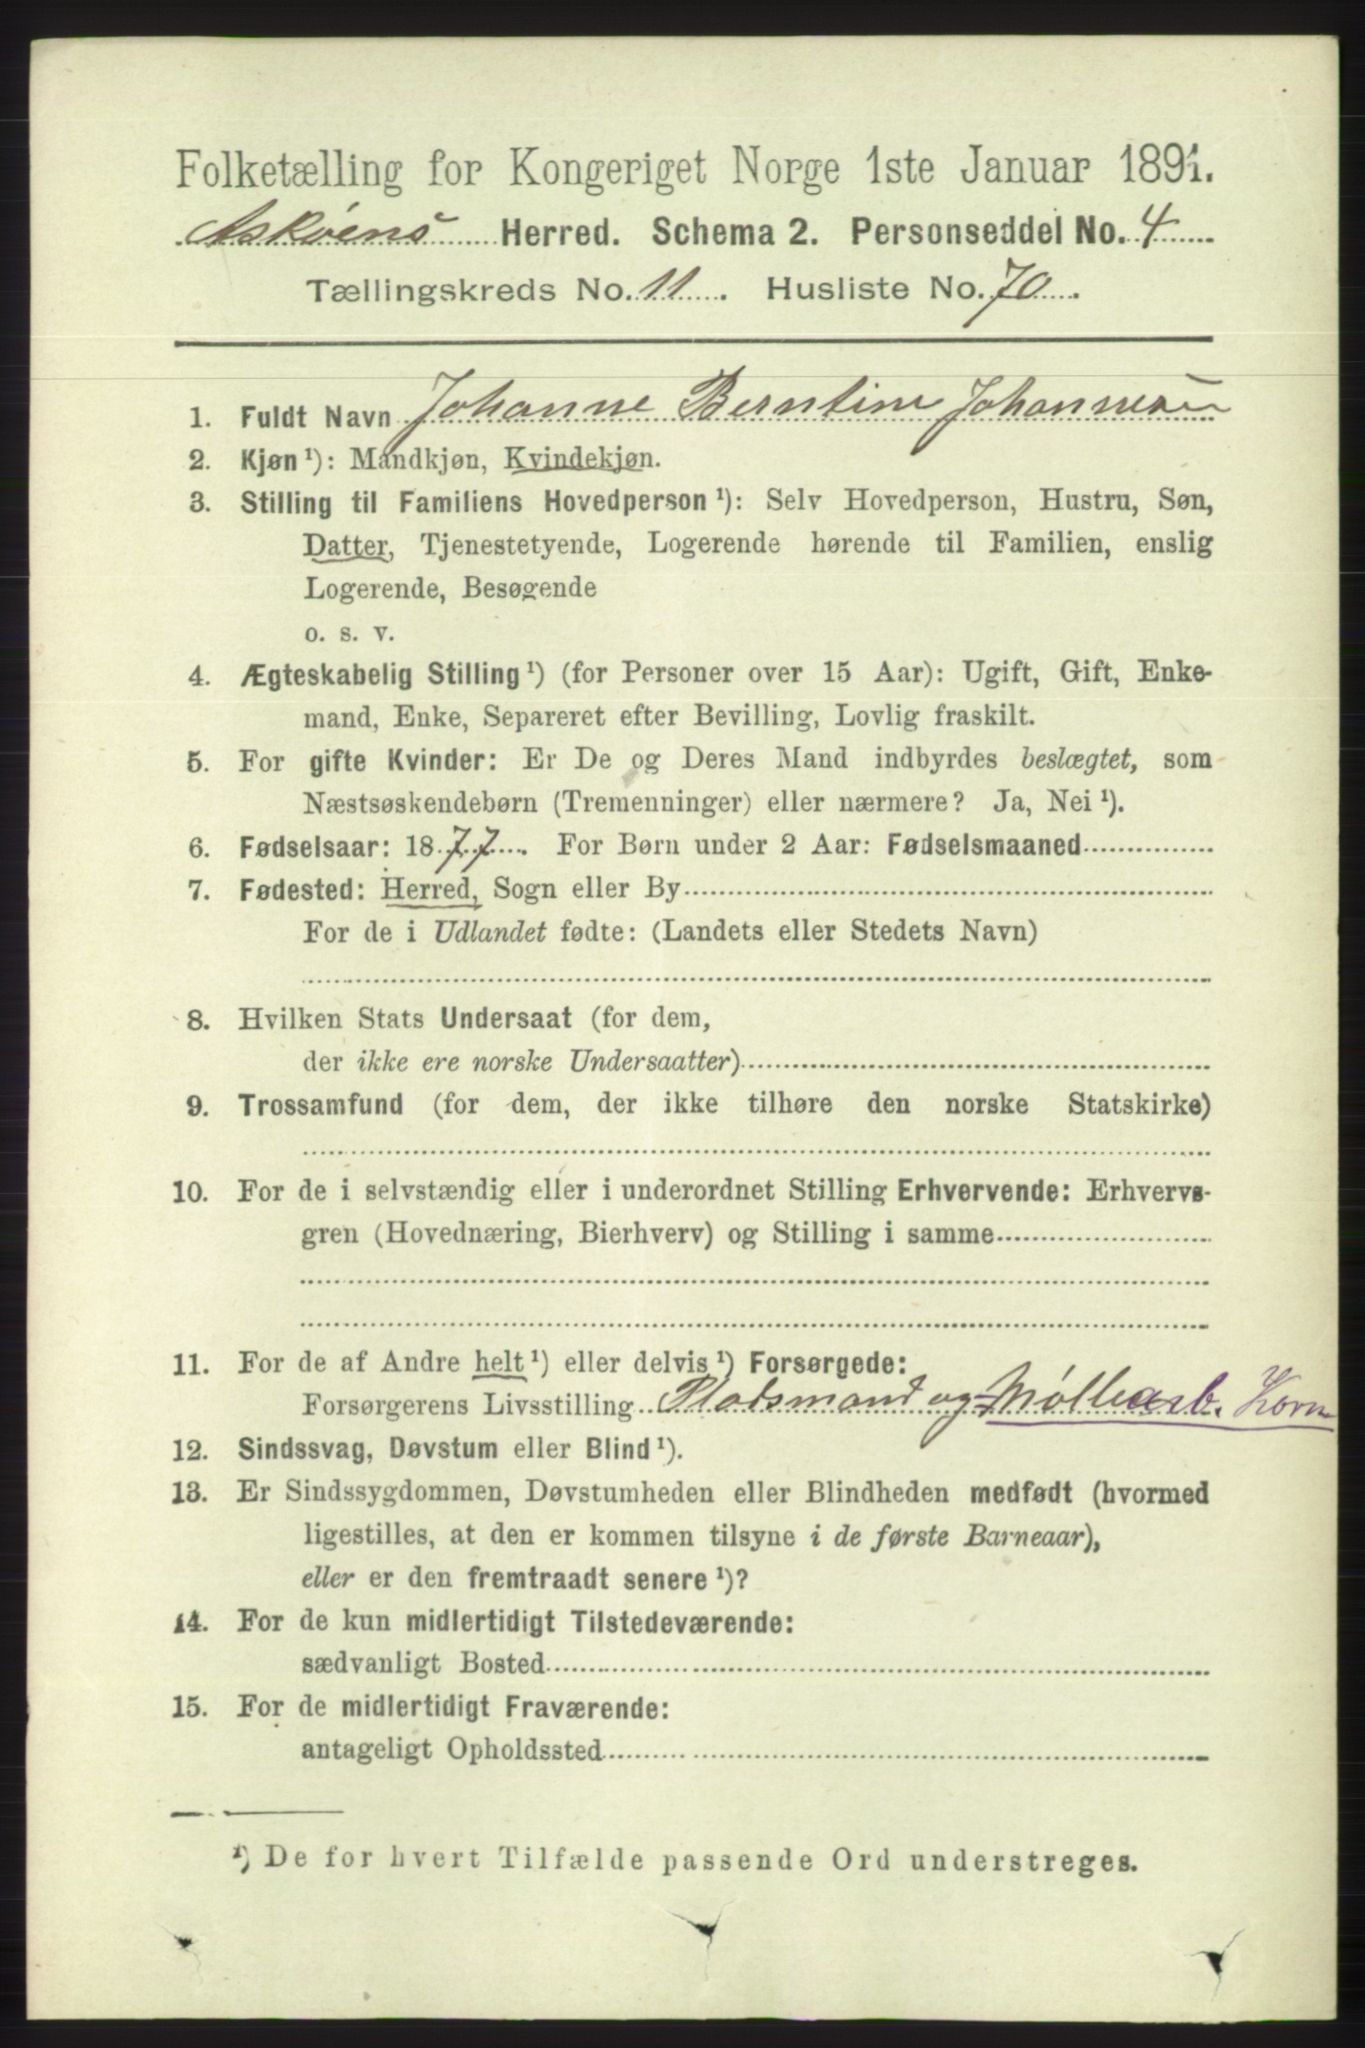 Folketælling for Kongeriget Norge 1ste Januar 1891.
Askøens Herred. Schema 2. Personseddel No. 4
Tællingskreds No. 11. Husliste No. 70.
1. Fuldt Navn Johanne Berntine Johannesen
2. Kjøn ¹): Mandkjøn, Kvindekjøn.
3. Stilling til Familiens Hovedperson ¹): Selv Hovedperson, Hustru, Søn,
Datter, Tjenestetyende, Logerende hørende til Familien, enslig
Logerende, Besøgende
o. s. v.
4. Ægteskabelig Stilling ¹) (for Personer over 15 Aar): Ugift, Gift, Enke-
mand, Enke, Separeret efter Bevilling, Lovlig fraskilt.
5. For gifte Kvinder: Er De og Deres Mand indbyrdes beslægtet, som
Næstsøskendebørn (Tremenninger) eller nærmere? Ja, Nei ¹).
6. Fødselsaar: 1877. For Børn under 2 Aar: Fødselsmaaned
7. Fødested: Herred, Sogn eller By
For de i Udlandet fødte: (Landets eller Stedets Navn)
8. Hvilken Stats Undersaat (for dem,
der ikke ere norske Undersaatter)
9. Trossamfund (for dem, der ikke tilhøre den norske Statskirke)
10. For de i selvstændig eller i underordnet Stilling Erhvervende: Erhvervs-
gren (Hovednæring, Bierhverv) og Stilling i samme
11. For de af Andre helt ¹) eller delvis ¹) Forsørgede:
Forsørgerens Livsstilling Pladsmand og Møllearb. Korn
12. Sindssvag, Døvstum eller Blind ¹).
13. Er Sindssygdommen, Døvstumheden eller Blindheden medfødt (hvormed
ligestilles, at den er kommen tilsyne i de første Barneaar),
eller er den fremtraadt senere ¹)?
14. For de kun midlertidigt Tilstedeværende:
sædvanligt Bosted
15. For de midlertidigt Fraværende:
antageligt Opholdssted
¹) De for hvert Tilfælde passende Ord understreges.